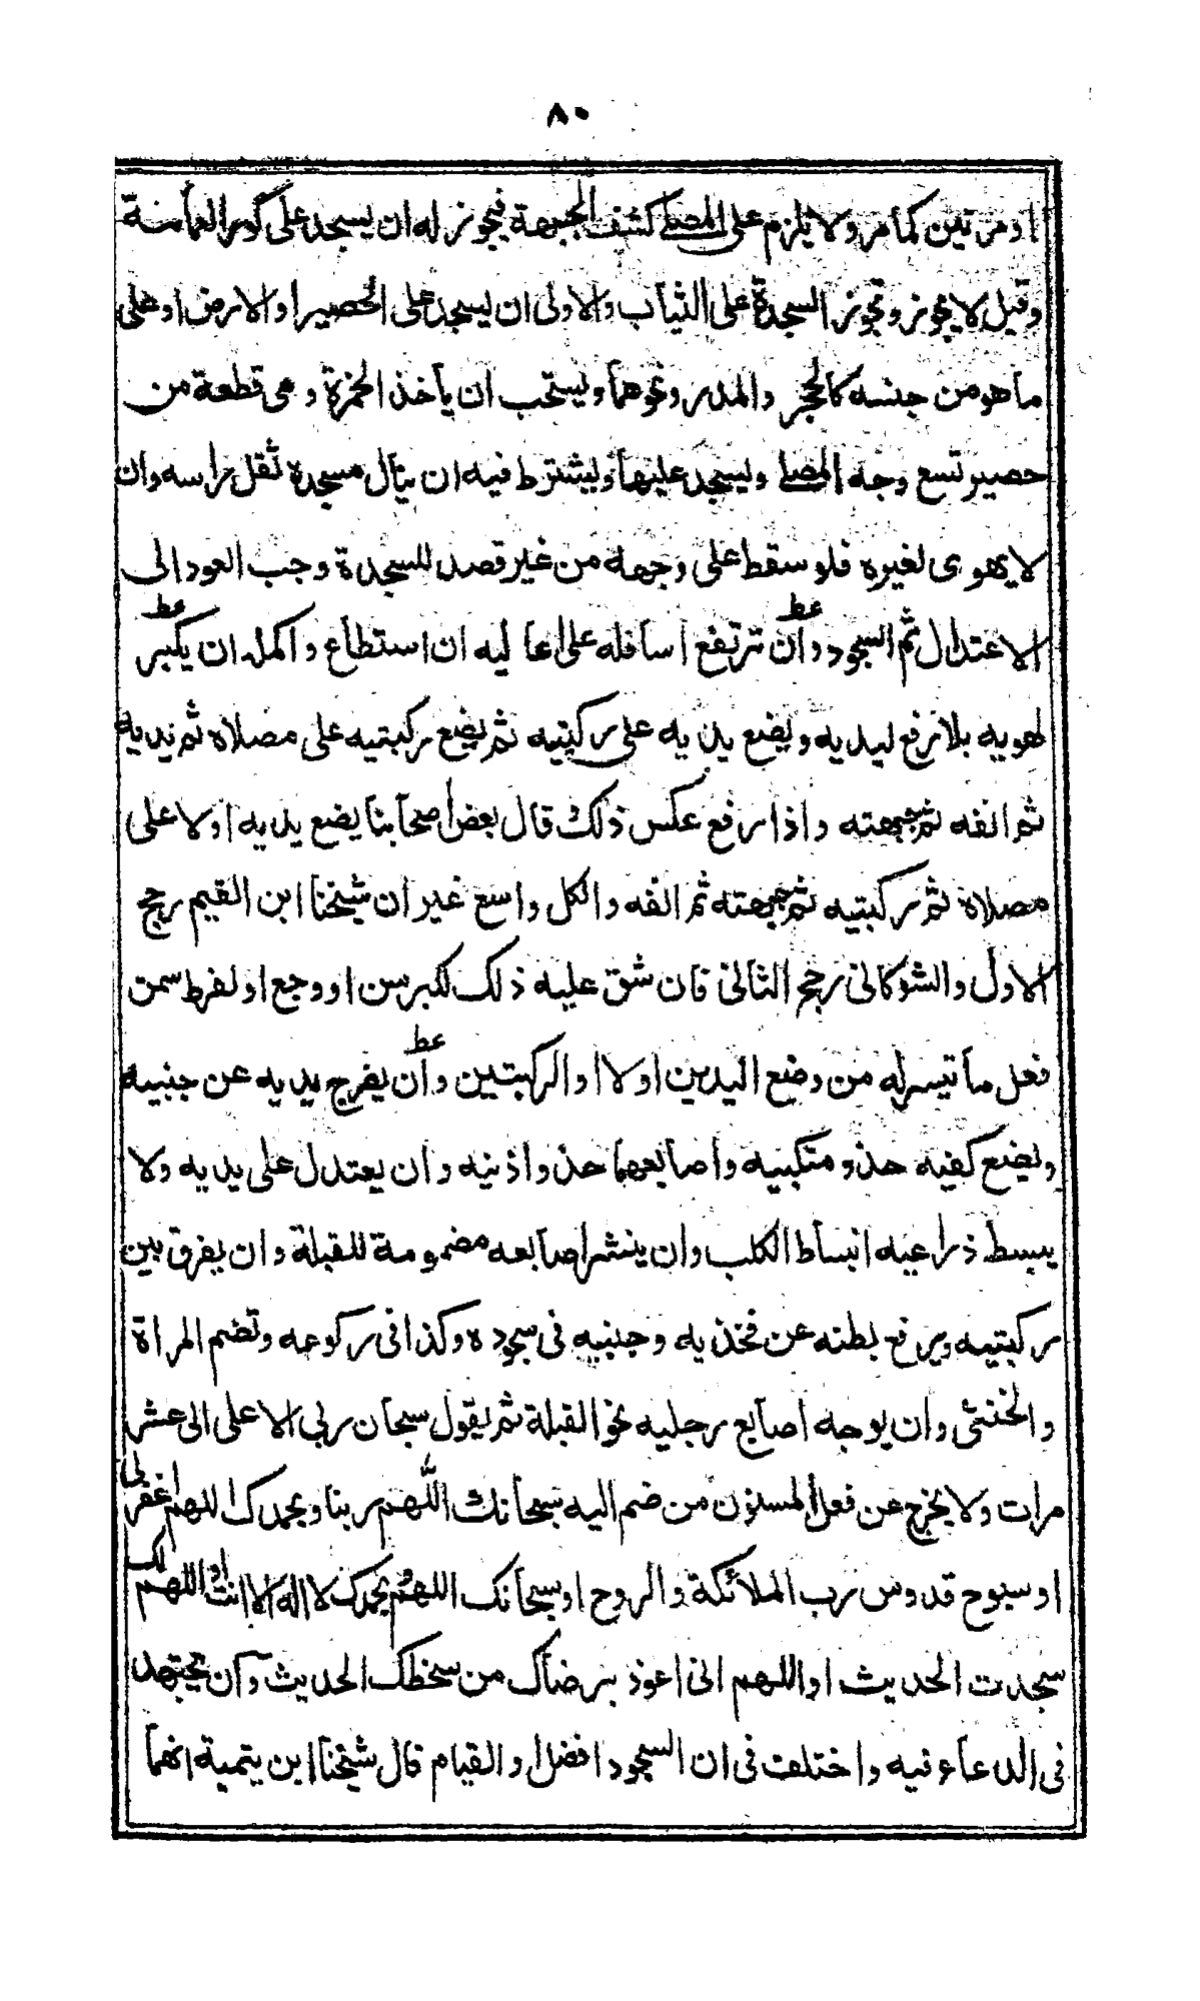 ٨٠
او مرتين كما مر ولا يلزم على المصلے كشف الجبهة فيجوز له ان يسجد على كور العمامة
وقيل لا يجوز وتجوز السجدة على الثياب والاولى ان يسجد على الحصير او الارض او على
ما هو من جنسه كالحجر والمدر ونحوهما ويستحب ان يأخذ الخمرة وهى قطعة من
حصير تسع وجه المصلے ويسجد عليها ويشترط فيه ان ينال مسجده ثقل راسه وان
لا يهوى لغيره فلو سقط على وجهه من غير قصد للسجدة وجب العود الى
الاعتدال ثم السجود وان ترتفع اسافله على اعاليه ان استطاع واكمله ان يكبر
لهويه بلا رفع ليديه ويضع يديه على ركبتيه ثم يضع ركبتيه على مصلاه ثم يديه
ثم انفه ثم جبهته واذا رفع عكس ذلك قال بعض اصحابنا يضع يديه اولا على
مصلاه ثم ركبتيه ثم جبهته ثم انفه والكل واسع غير ان شيخنا ابن القيم رجح
الاول والشوكانى رجح الثانى فان شق عليه ذلك لكبر سن او وجع او لفرط سمن
فعل ما تيسر له من وضع اليدين اولا او الركبتين وان يفرج يديه عن جنبيه
ويضع كفيه حذو منكبيه واصابعهما حذو اذنيه وان يعتدل على يديه ولا
يبسط ذراعيه انبساط الكلب وان ينشر اصابعه مضمومة للقبلة وان يفرق بين
ركبتيه ويرفع بطنه عن فخذيه وجنبيه فى سجوده وكذا فى ركوعه وتضم المراة
والخنثى وان يوجه اصابع رجليه نحو القبلة ثم يقول سبحان ربى الاعلى الى عشر
مرات ولا يخرج عن فعل المسنون من ضم اليه سبحانك اللّهم ربنا وبحمدك اللهم اغفرلى
او سبوح قدوس رب الملائكة والروح او سبحانك اللهم وبحمدك لا اله الا انت او اللهم لك
سجدت الحديث او اللهم انى اعوذ برضاك من سخطك الحديث وان يجتهد
فى الدعاء فيه واختلف فى ان السجود افضل او القيام قال شيخنا ابن يتمية انهما